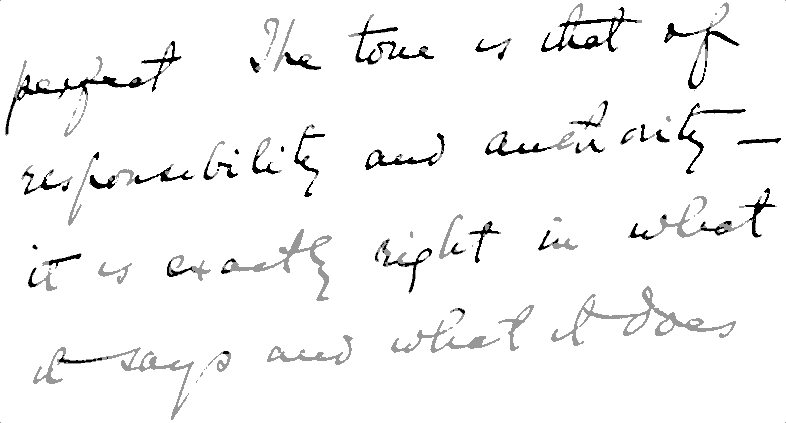 perfect The tone is that of
responsibility and authority —
it is exactly right in what
it says and what it does